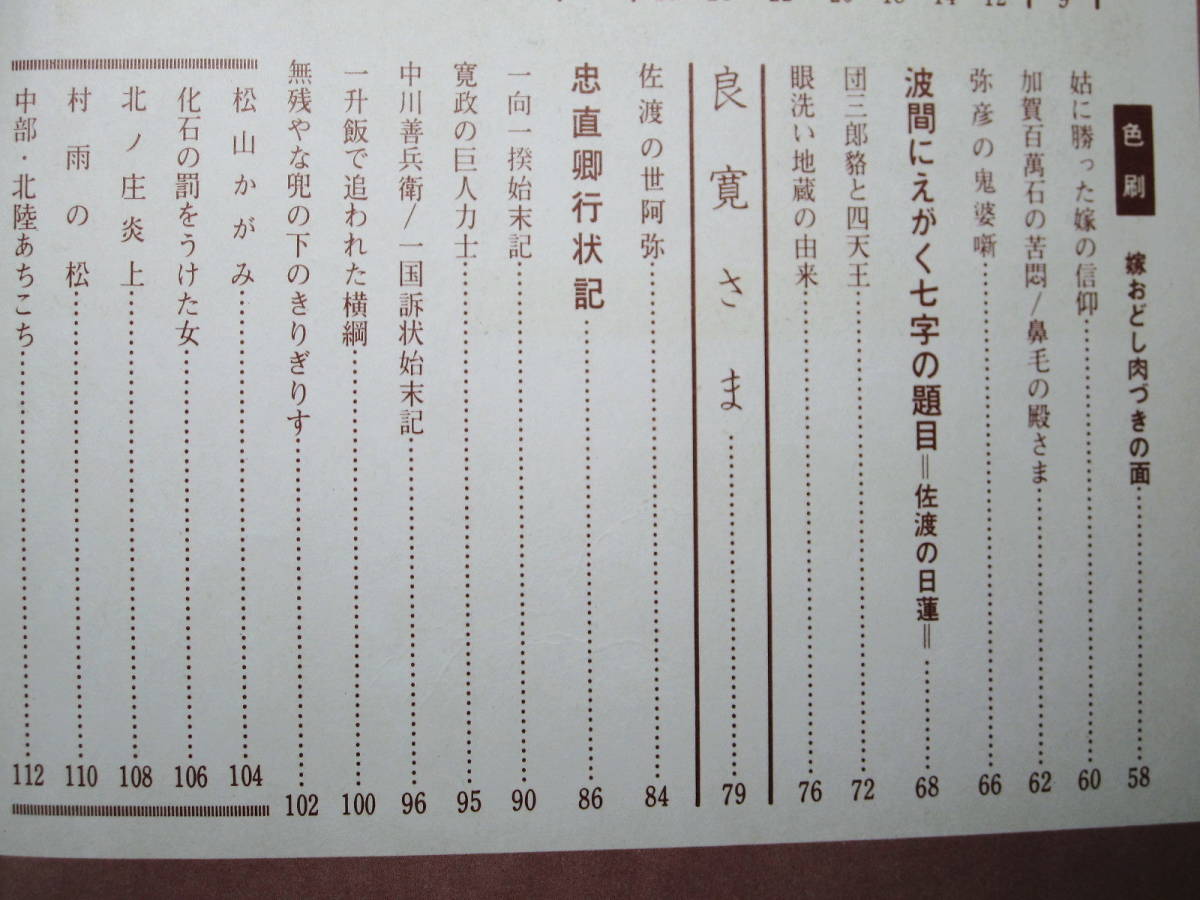 色刷 嫁おどし肉づきの面……58
姑に勝った嫁の信仰……60
加賀百萬石の苦悶/鼻毛の殿さま……62
弥彦の鬼婆噺……66
波間にえがく七字の題目＝佐渡の日蓮＝……68
団三郎貉と四天王……72
眼洗い地蔵の由来……76
良寛さま……79
佐渡の世阿弥……84
忠直卿行状記……86
一向一揆始末記……90
寛政の巨人力士……95
中川善兵衛/一国訴状始末記……96
一升飯で追われた横綱……100
無残やな兜の下のきりぎりす……102
松山かがみ……104
化石の罰をうけた女……106
北ノ庄炎上……108
村雨の松……110
中部・北陸あちこち……112